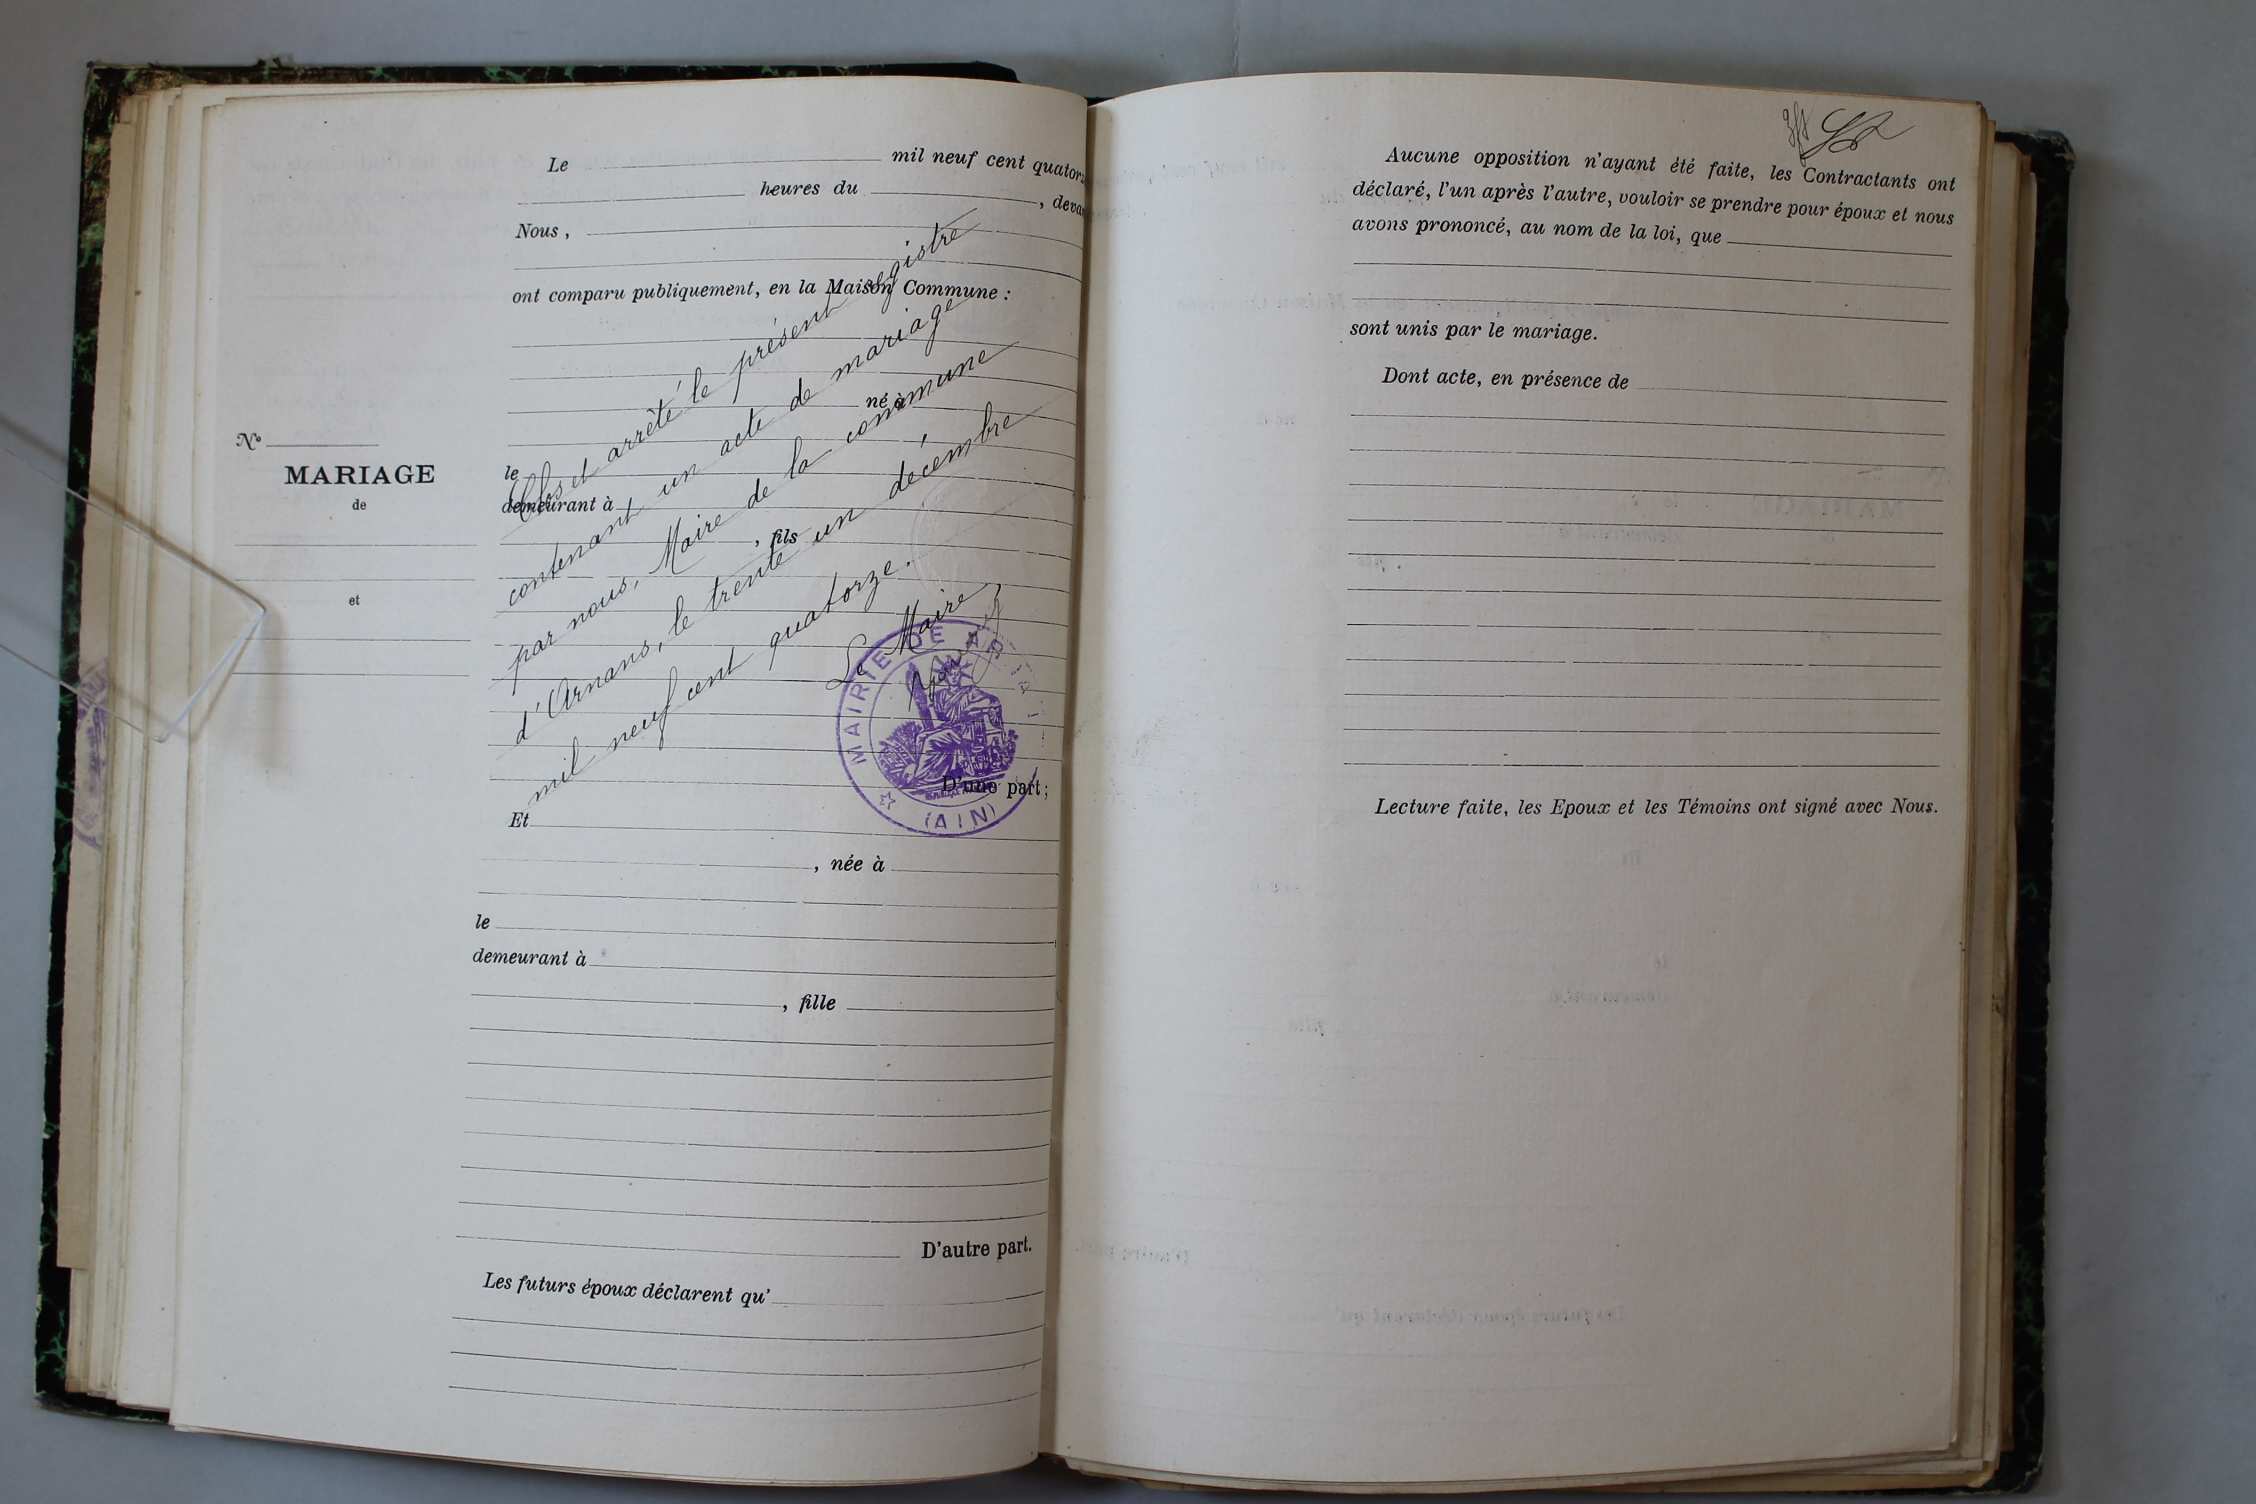 Le mil neuf cent quatorz
heures du , devan
Nous ,
ont comparu publiquement, en la Maison Commune :
né à
le
demeurant à
, fils
Clos et arrêté le présent registre
contenant un acte de mariage
par nous, Maire de la commune
d'Arnans, le trente un décembre
mil neuf cent quatorze.
Le Maire
MAIRIE DE
(AIN)
D'une part ;
Nº
MARIAGE
de
et
Et
, née à
le
demeurant à
, fille
D'autre part.
Les futurs époux déclarent qu'
Aucune opposition n'ayant été faite, les Contractants ont
déclaré, l'un après l'autre, vouloir se prendre pour époux et nous
avons prononcé, au nom de la loi, que
sont unis par le mariage.
Dont acte, en présence de
Lecture faite, les Epoux et les Témoins ont signé avec Nous.